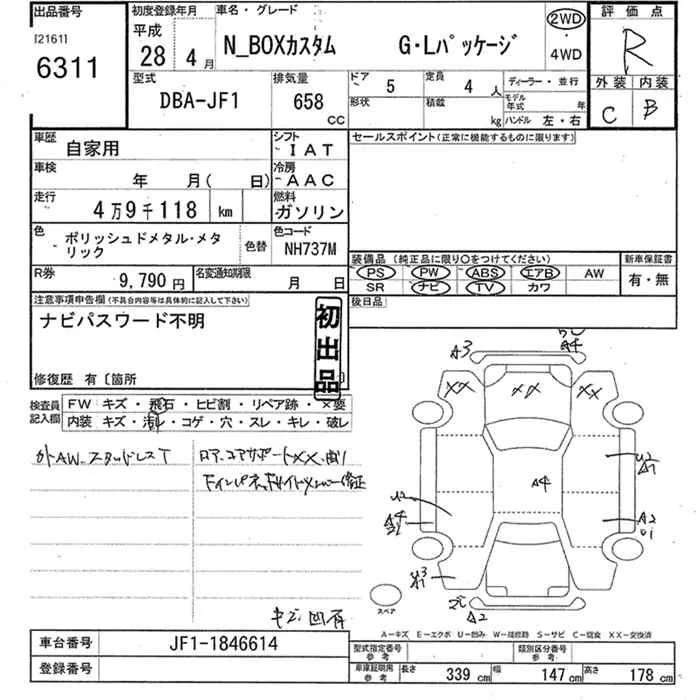 出品番号
[2161]
6311
初度登録年月
平成
28
4 月
車名・グレード
N_BOXカスタム G・Lパッケージ
2WD
・
4WD
評価点
R
外装 内装
C B
型式
DBA-JF1
排気量
658
CC
ドア 5
定員 4 人
形状
積載 kg
ディーラー・並行
モデル年式 年
ハンドル 左・右
車歴 自家用
シフト IAT
車検 年 月( 日)
冷房 AAC
走行 4万9千118 km
燃料 ガソリン
色 ポリッシュドメタル・メタリック
色替
色コード NH737M
R券 9,790 円
名変通知期限 月 日
セールスポイント(正常に機能するものに限ります)
装備品 (純正品に限り〇をつけてください)
PS PW ABS エアB AW
SR ナビ TV カワ
新車保証書
有・無
後日品
注意事項申告欄(不具合内容等は具体的に記入して下さい)
ナビパスワード不明
初出品
修復歴 有〔箇所
検査員記入欄
FW キズ・飛石・ヒビ割・リペア跡・×要
内装 キズ・汚レ・コゲ・穴・スレ・キレ・破レ
外AW.スタッドレスT
コアサポートXX
A3
A4
XX
XX
XX
A4
U2
A1
U2
A4
A2
A2
スペア
キズ凹有
A-キズ E-エクボ U-凹み W-補修跡 S-サビ C-腐食 XX-交換済
車台番号 JF1-1846614
登録番号
型式指定番号
参考
類別区分番号
参考
車庫証明用
参考
長さ 339 cm
幅 147 cm
高さ 178 cm